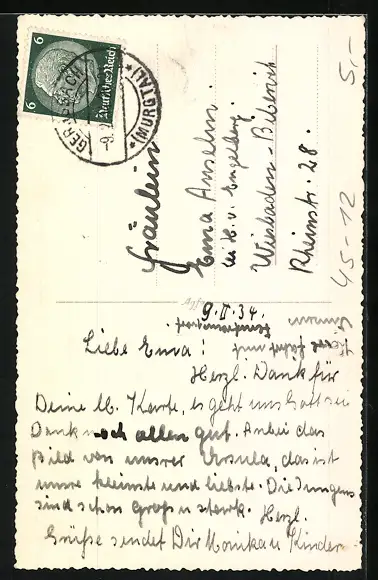 6 Deutsches Reich 6
GERNSBACH
(MURGTAL)
5.-
45-12
Fräulein
Erna Anselm.
bei H. v. Engelberg.
Wiesbaden-Biebrich
Rheinstr. 28.
9.II.34.
Liebe Erna!
Herzl. Dank für
Deine lb. Karte, es geht uns Gott sei
Dank noch allen gut. Anbei das
Bild von unsrer Ursula, das ist
unsre kleinste und liebste. Die Jungens
sind schon groß u stark. Herzl.
Grüße sendet Dir Monika u Kinder